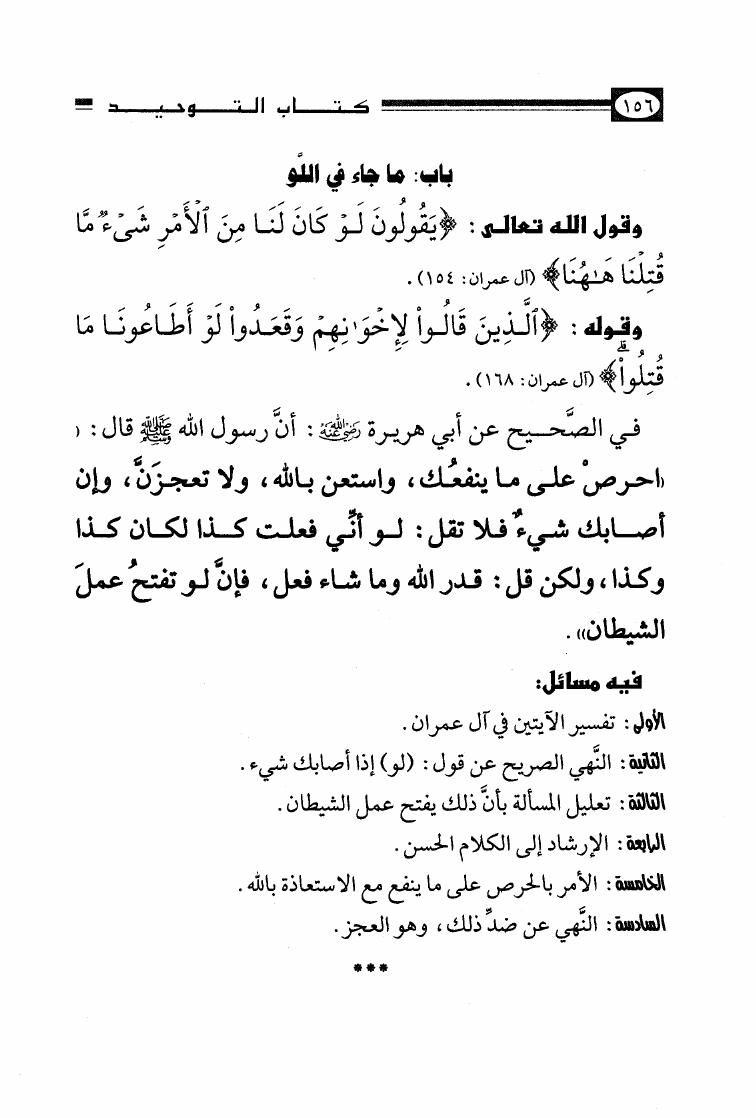 ١٥٦ كتاب التوحيد
باب: ما جاء في اللَّو
وقول الله تعالى: ﴿يَقُولُونَ لَوْ كَانَ لَنَا مِنَ ٱلْأَمْرِ شَىْءٌ مَّا
قُتِلْنَا هَـٰهُنَا﴾ (آل عمران: ١٥٤).
وقوله: ﴿ٱلَّذِينَ قَالُوا۟ لِإِخْوَٰنِهِمْ وَقَعَدُوا۟ لَوْ أَطَاعُونَا مَا
قُتِلُوا۟ۗ﴾ (آل عمران: ١٦٨).
في الصَّحيح عن أبي هريرة رضي الله عنه: أنَّ رسول الله ﷺ قال: (
(احرصْ على ما ينفعُك، واستعن بالله، ولا تعجزَنَّ، وإن
أصابك شيءٌ فلا تقل: لو أنِّي فعلت كذا لكان كذا
وكذا، ولكن قل: قدر الله وما شاء فعل، فإنَّ لو تفتحُ عملَ
الشيطان)).
فيه مسائل:
الأولى: تفسير الآيتين في آل عمران.
الثانية: النَّهي الصريح عن قول: (لو) إذا أصابك شيء.
الثالثة: تعليل المسألة بأنَّ ذلك يفتح عمل الشيطان.
الرابعة: الإرشاد إلى الكلام الحسن.
الخامسة: الأمر بالحرص على ما ينفع مع الاستعاذة بالله.
السادسة: النَّهي عن ضدِّ ذلك، وهو العجز.
***